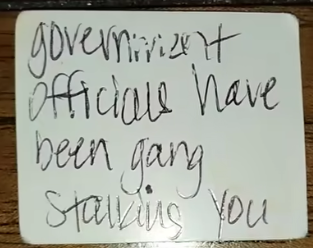 government
officials have
been gang
stalking you